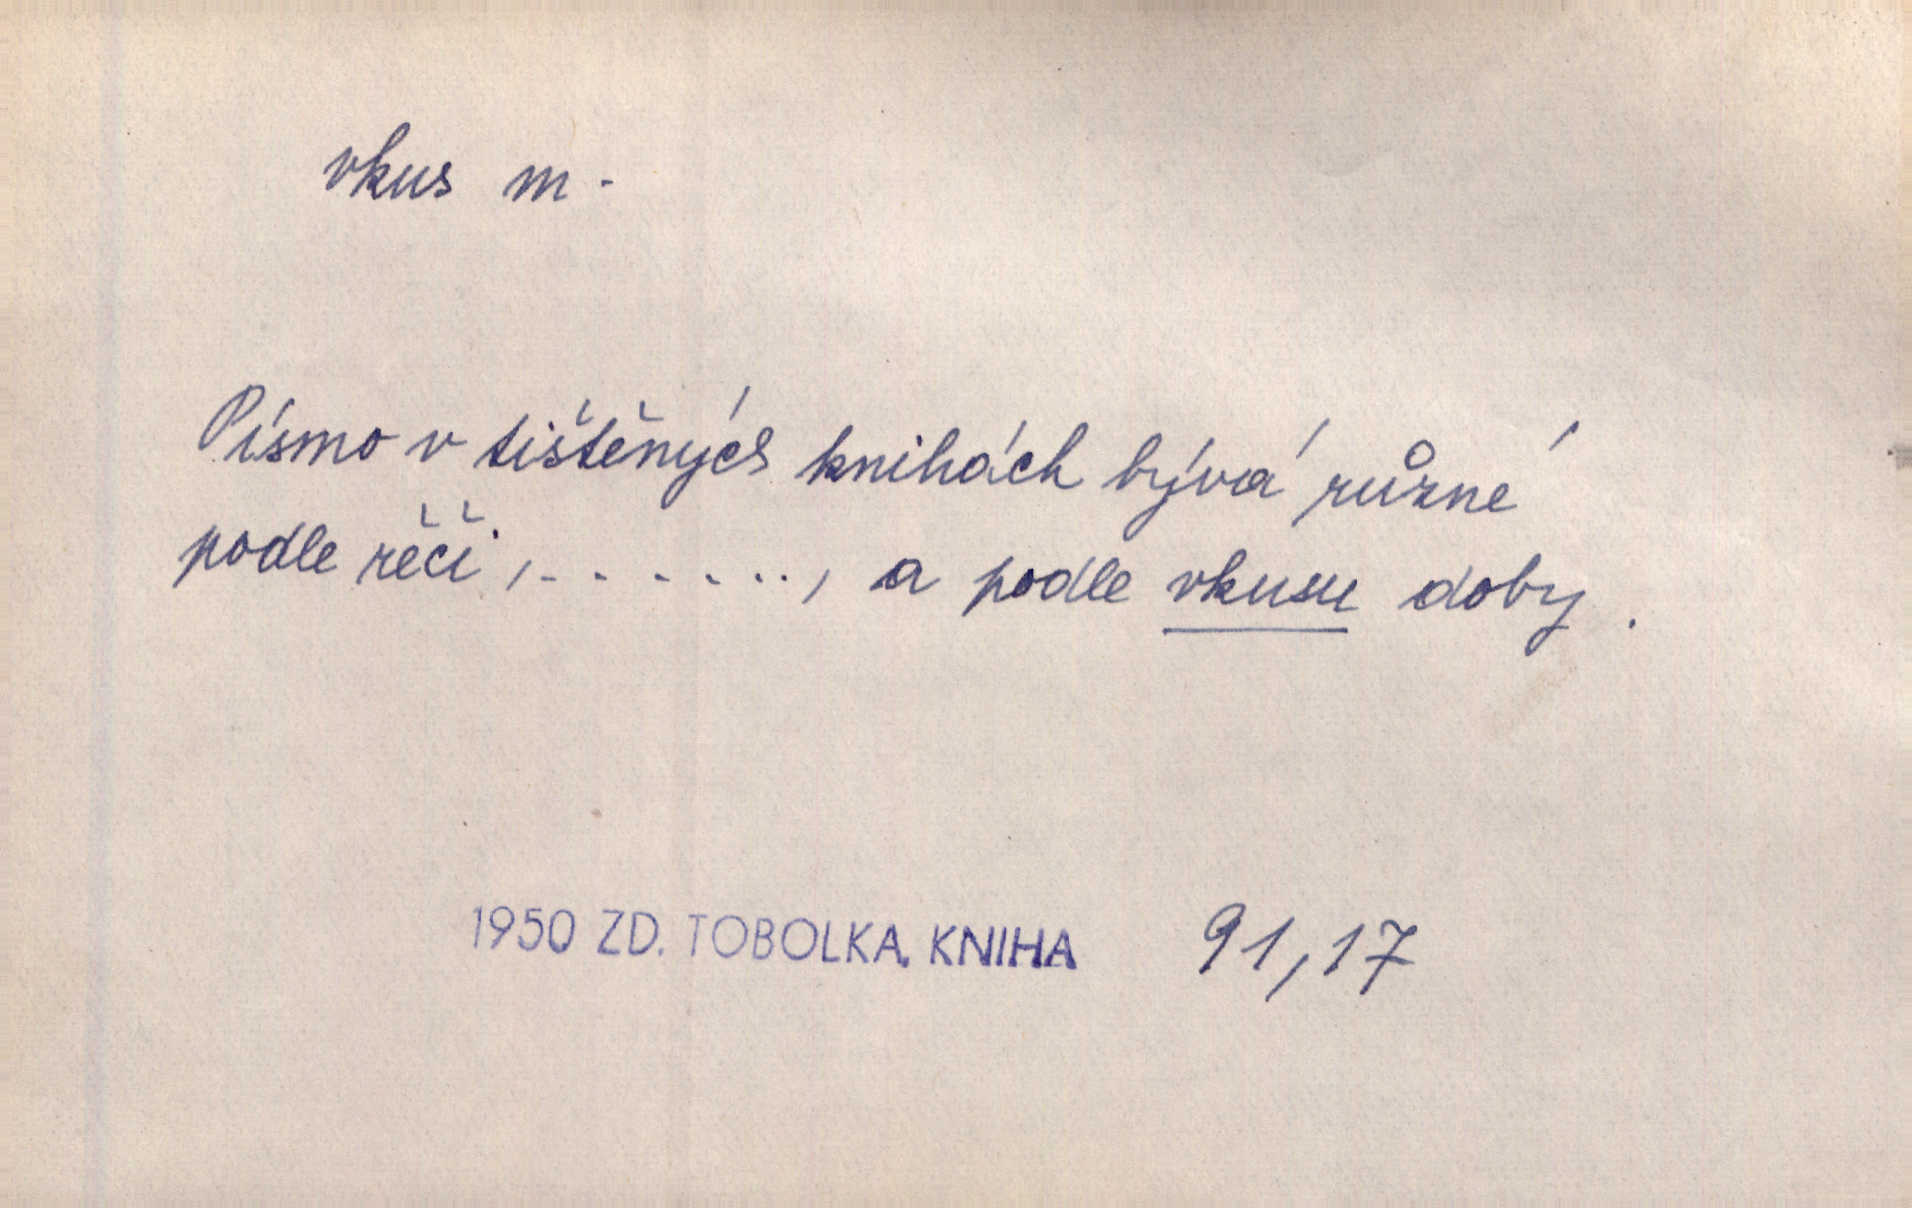 vkus m.
Písmo v tištěných knihách bývá různé
podle řeči, ......., a podle vkusu doby.
1950 ZD. TOBOLKA, KNIHA 91,17